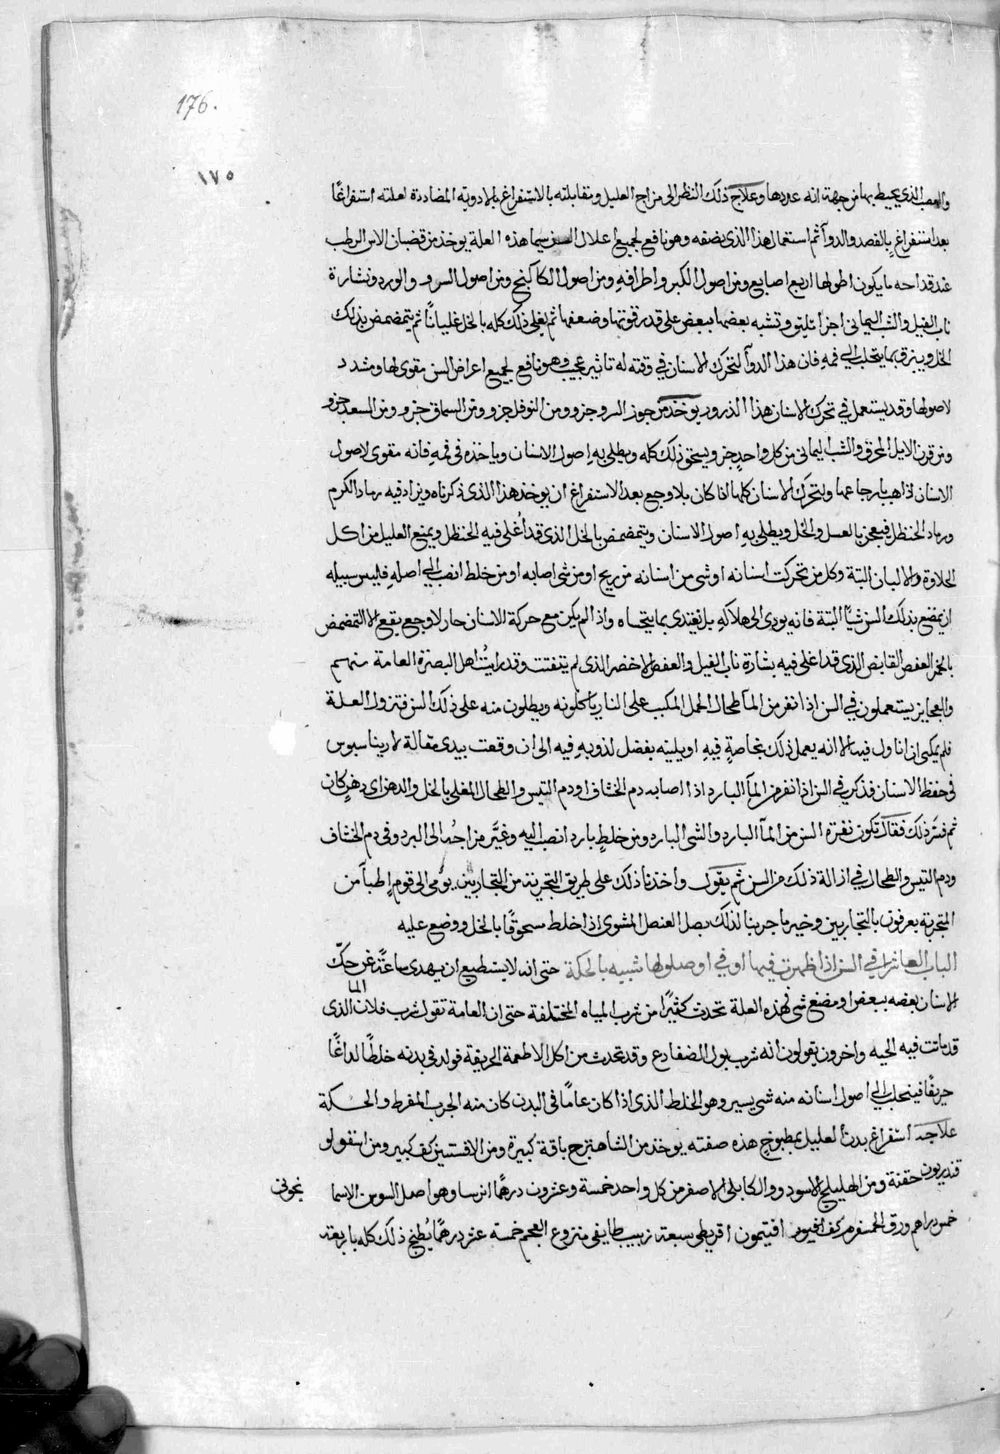 176.
١٧٥
والعصب الذي يحيط بها من جهة انه عددها وعلاج ذلك النظر الى مزاج العليل ومقابلته بالاستفراغ بالادوية المضاددة لعلته استفراغًا
بعد استفراغ بالفصد والدوآ ثم استعمال هذا الذى نصفه وهو نافع لجميع اعلال السن سيما هذه العلة يوخذ من قضبان الاس الرطب
عند قداحه ما يكون اطولها اربع اصابع ومن اصول الكبر واطرافه ومن اصول الكاكنج ومن اصول السرو والورد ونشارة
ناب الفيل والشب اليمانى اجزا تليق وتشبه بعضها ببعض على قدر قوتها وضعفها ثم يغلى ذلك كله بالخل غليانًا ثم يتمضمض بذلك
الخل ويبزق بما يتحلب الى فمه فان هذا الدوآ لتحرك الاسنان في وقته له تاثير عجيب وهو نافع لجميع اعراض السن مقوى لها ومشدد
لاصولها وقد يستعمل في تحرك الاسنان هذا الذرور يوخذ من جوز السرو جزو ومن النوفل جزو ومن السماق جزو ومن السعد جزو
ومن قرن الايل المحرق والشب اليمانى من كل واحد جزو يسحق ذلك كله ويطلى به اصول الاسنان وياخذه فى فمه فانه مقوى لاصول
الاسنان ذاهب بارجاعها ولتحرك الاسنان كلها اذا كان بلا وجع بعد الاستفراغ ان يوخذ هذا الذى ذكرناه ويزاد فيه رماد الكرم
ورماد الحنظل فيعجن بالعسل والخل ويطلى به اصول الاسنان ويتمضمض بالخل الذى قد اُغلى فيه الحنظل ويمنع العليل من اكل
الحلاوة والالبان البتة وكل من تحركت اسنانه او شى من اسنانه من ريح او من شى اصابه او من خلط انصب الى اصله فليس سبيله
ان يمضغ بذلك السن شيًا البتة فانه يودى الى هلاكه بل يغتدى بما يتحساه واذا لم يكن مع حركة الاسنان حار لا وجع يقع الا التمضمض
بالخمر العفص القابض الذى قد اغلى فيه بشارة ناب الفيل والعفص الاخضر الذى لم يتفتت وقد رايتُ اهل البصرة العامة منهم
والعجايز يستعملون في السن اذا نفر من المآ طحال الحمل المكبب على النار ياكلونه ويطلون منه على ذلك السن فتزول العلة
فلم يمكنى ان اناول فيه الا انه يعمل ذلك بخاصةٍ فيه او يليّنه بفضل لذوبه فيه الى ان وقعت بيدى مقالة لاريباسيوس
فى حفظ الاسنان فذكر في السن اذا نفر من المآ البارد اذا اصابه دم الخشاف او دم التيس والطحال المغلى بالخل والدهن اى دهن كان
ثم فسّر ذلك فقال تكون نفرة السن من المآ البارد والشى البارد ومن خلط بارد انصب اليه وغيّر مزاجُه الى البرد وفى دم الخشاف
ودم التيس والطحال في ازالة ذلك من السن ثم يقول واخذنا ذلك على طريق التجربة من التجاربيين يومى الى قوم اطبآ من
التجربة يعرفون بالتجاربيين وخير ما جربنا لذلك بصل العنصل المشوى اذا خلط سحوقًا بالخل ووضع عليه
الباب العاشر في السن اذا ظهرت فيها او في اوصلولها شبيه بالحكة حتى انه لا يستطيع ان يهدى ساعةً عن حكّ
الاسنان بعضه ببعض او مضغ شى فهذه العلة تحدث كثيرًا من شرب المياه المختلفة حتى ان العامة تقول شرب فلان المآ الذى
قد باتت فيه الحيه واخرون يقولون انه شرب بول الضفادع وقد تحدث من اكل الاطعمة الحريفة فولد فى بدنه خلطًا لداغًا
حريفًا فينحلب الى اصول اسنانه منه شى يسير وهو الخلط الذى اذا كان عامًا فى البدن كان منه الجرب المفرط والحكة
علاجه استفراغ بدن العليل بمطبوخ هذه صفته يوخذ من الشاهترج باقة كبيرة ومن الافستين كف كبير ومن اسقولو
قندريون حفنة ومن الهليلج الاسود والكابلى الاصفر من كل واحد خمسة وعشرون درهمًا ايرسا وهو اصل السوسن الاسما
نجونى
خمس دراهم ورق الخسفرم كف افتيمون اقريطى سبعة زبيب طايفى منزوع العجم خمسة عشر درهمًا يُطبخ ذلك كله باربعة